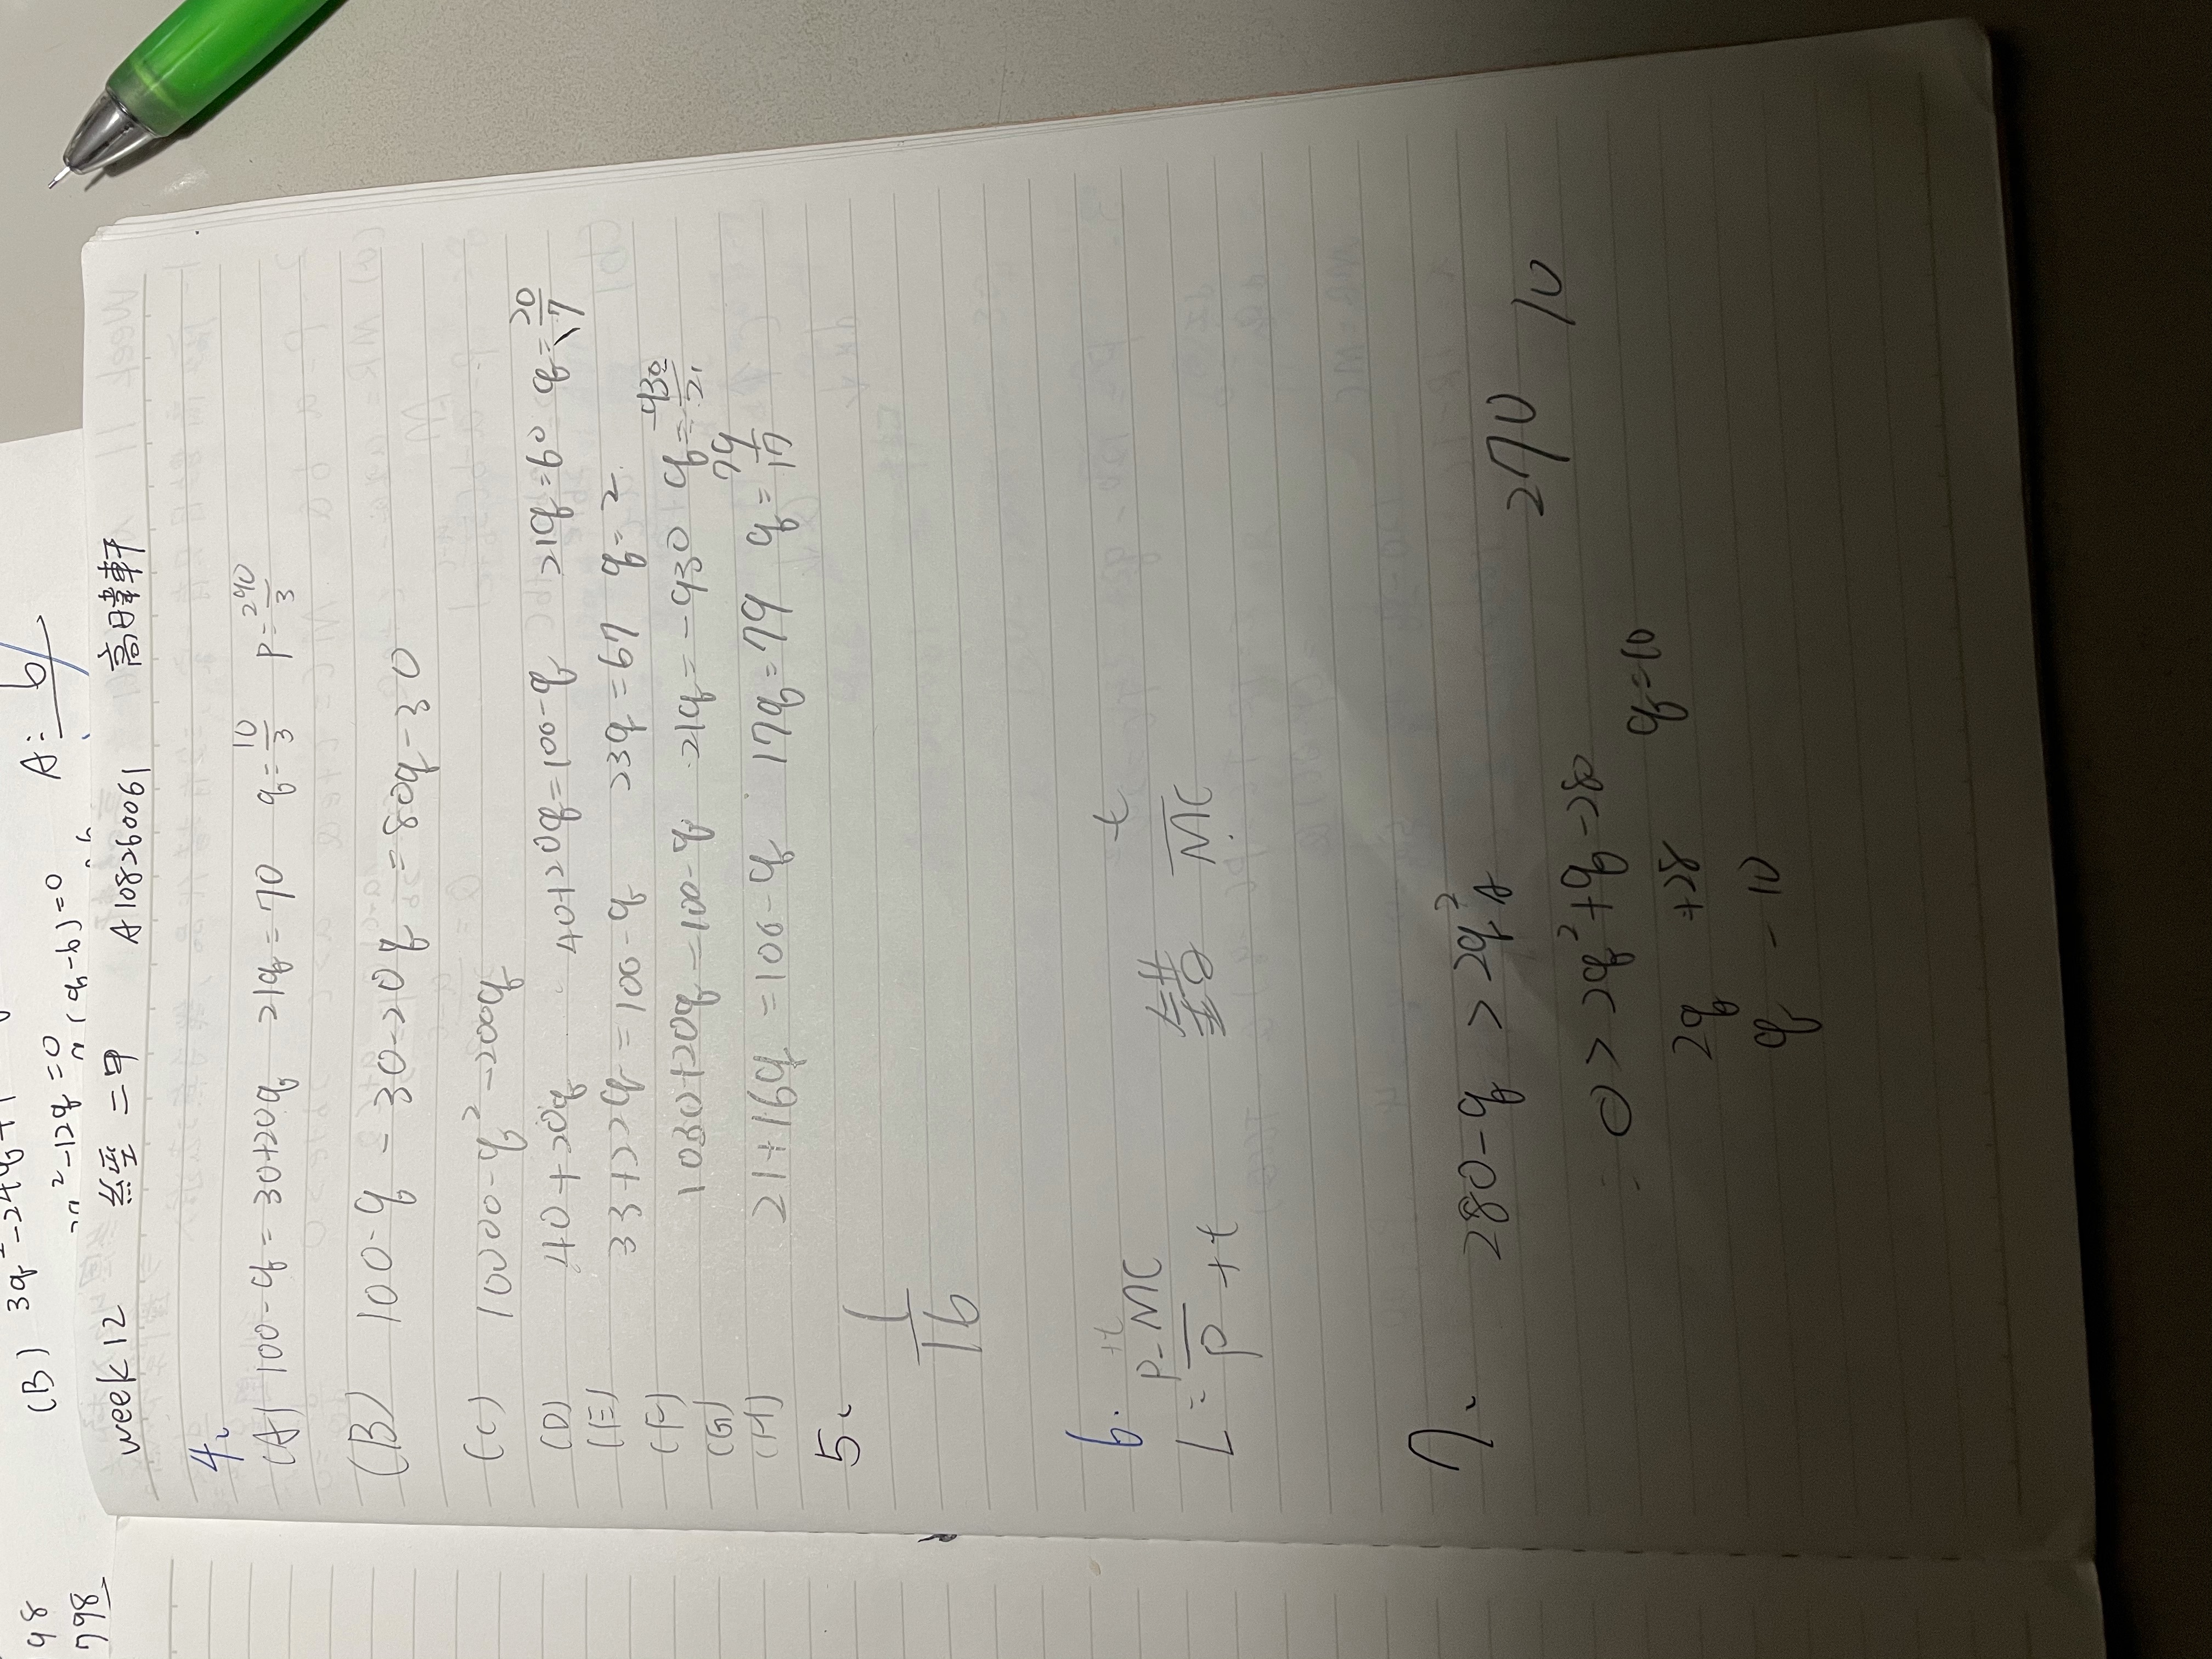 98
798
(B) 3q²-24q+1
q²-12q=0
(q-6)=0
A: 6
week 12 經 二甲 A108260061 高暐軒
4、
(A) 100-q = 30+20q 21q = 70 q = 10/3 p = 290/3
(B) 100-q - 30-20q = 80q-30
(C) 10000-q²-200q
(D) 40+20q 40+20q=100-q 21q=60 q=20/7
(E) 33+22q = 100-q 23q = 67 q = 2
(F) 1030+20q = 100-q 21q = -930 q = -930/21
(G)
(H) 21+16q = 100-q 17q = 79 q = 79/17
5、
1/16
6.
+t
L = P-MC/P +t 錯 t/MC
7、
280-q > 2q²A
= 0 > 2q²+q-280
270 10
2q +28 q=10
q -10